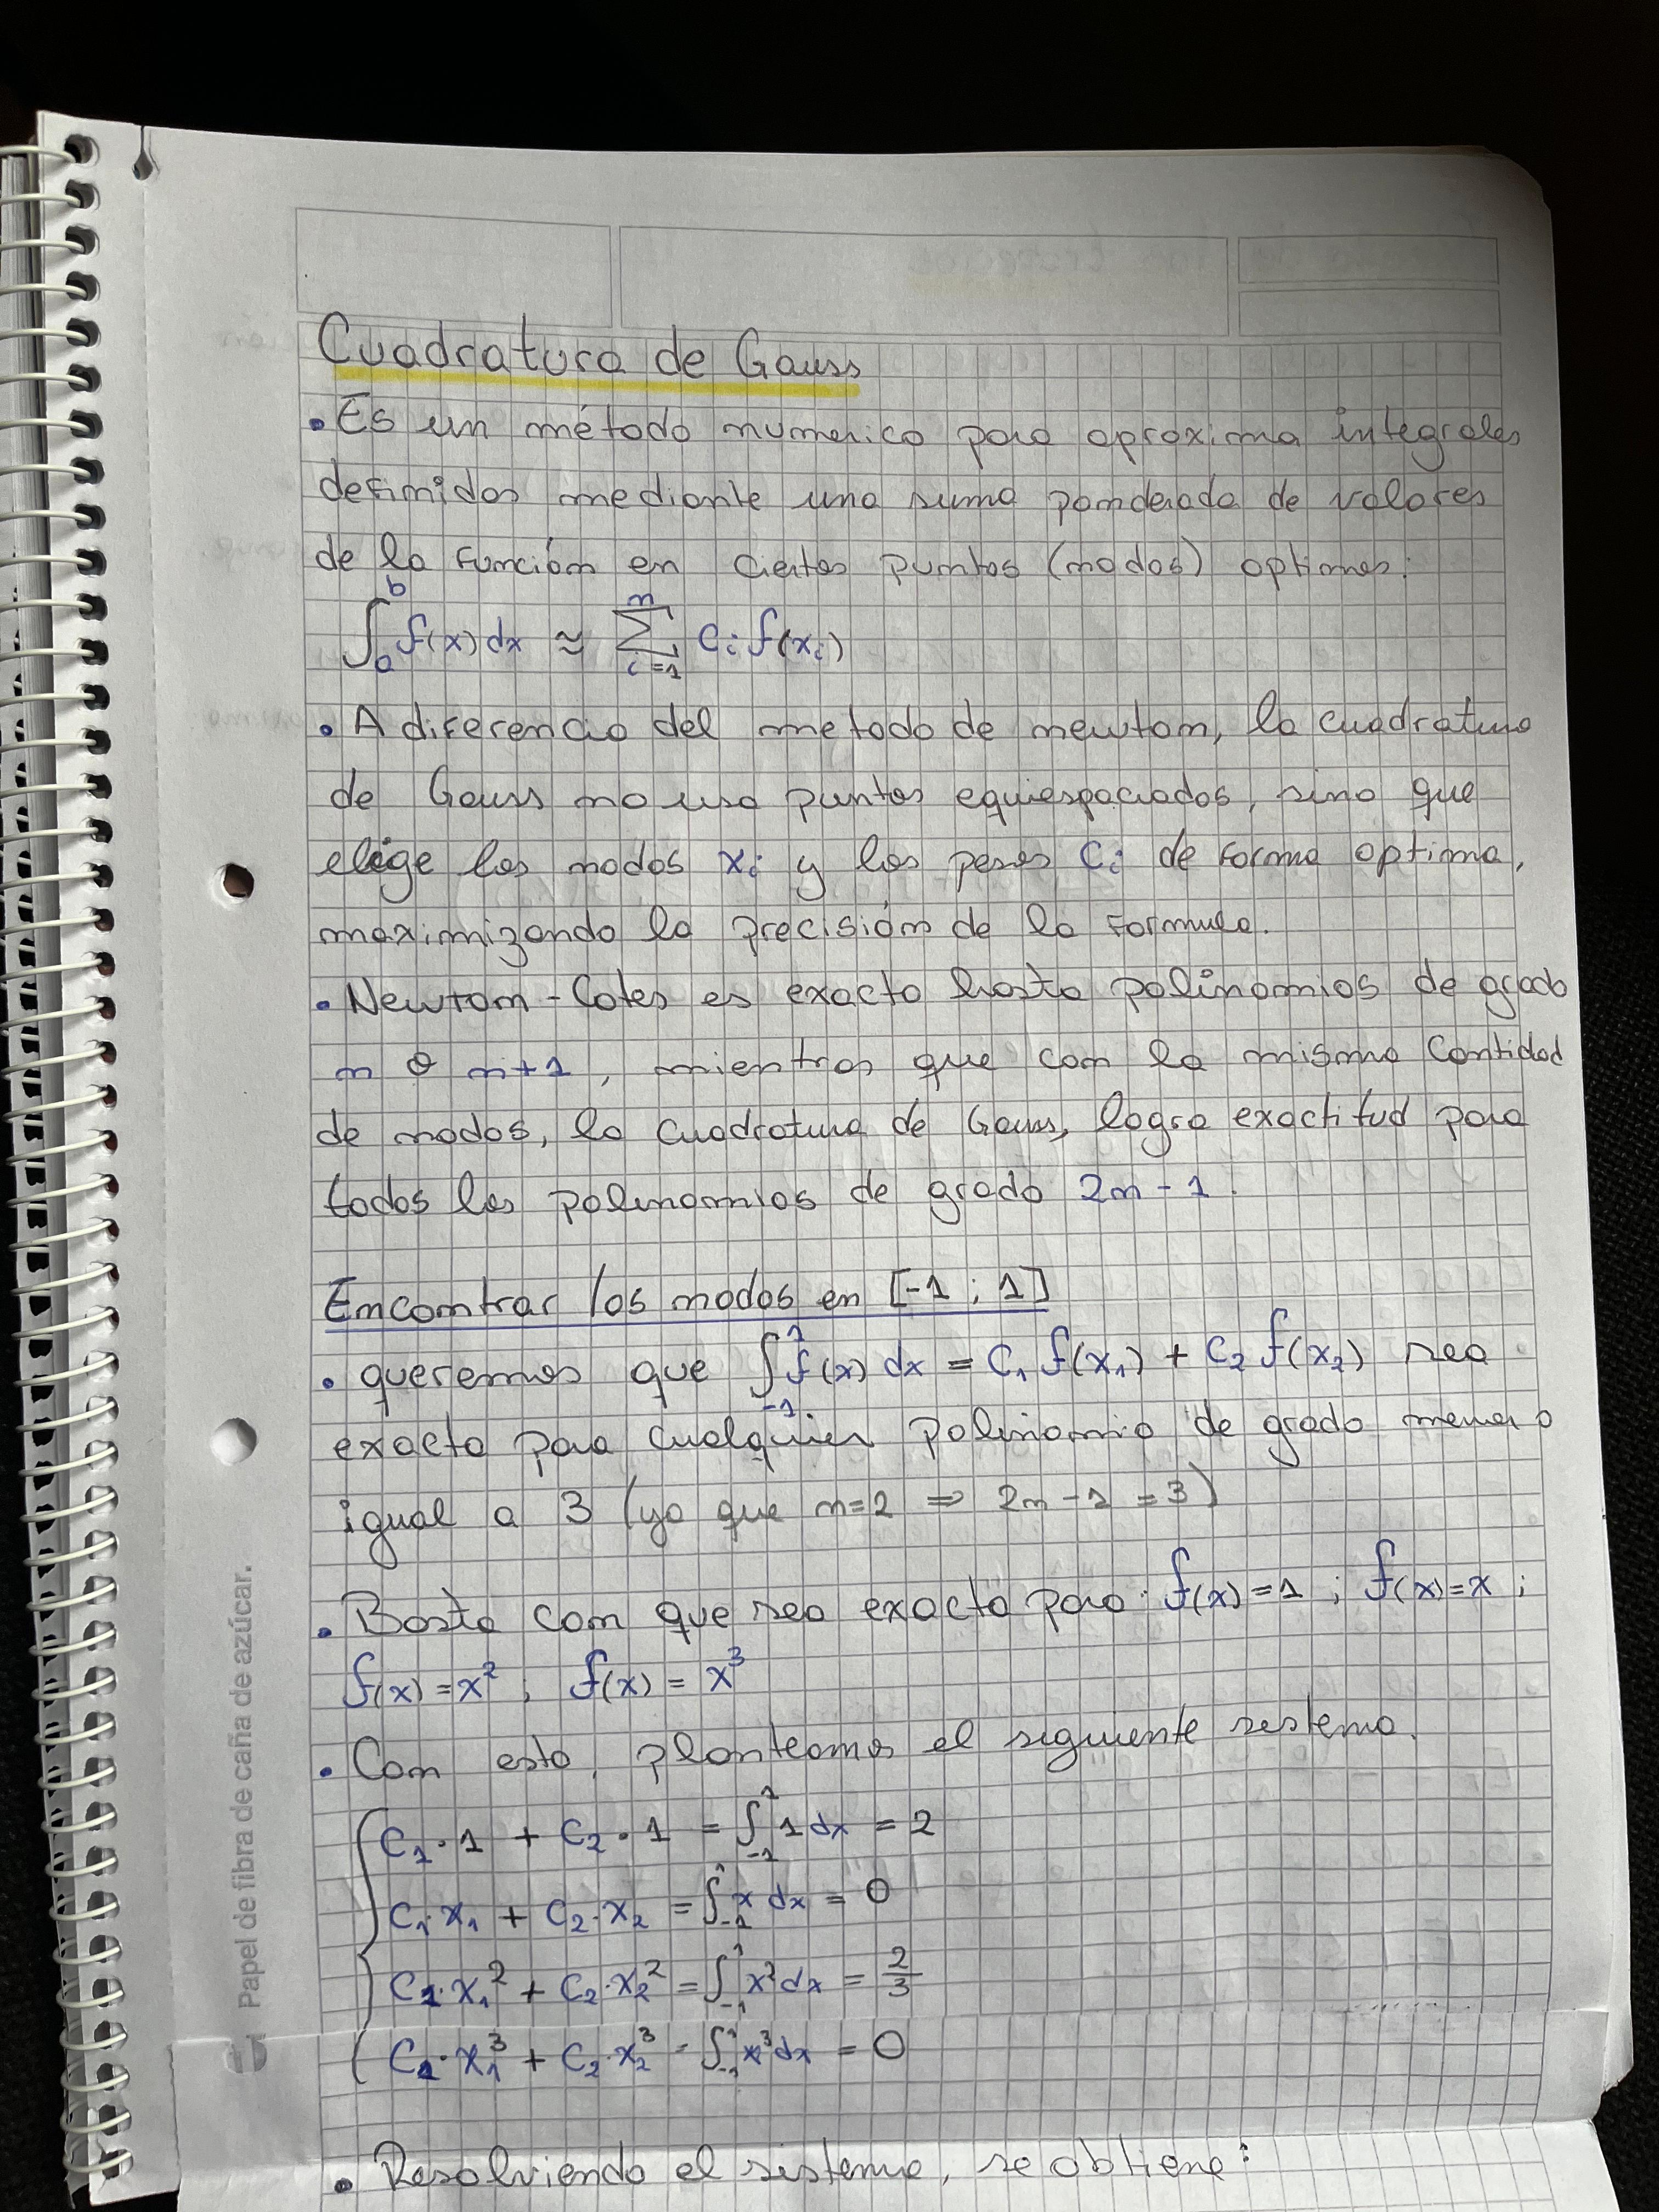 Cuadratura de Gauss
• Es un método numerico para aproxima integrales
definidas mediante una suma ponderada de valores
de la función en ciertos puntos (nodos) optimos:
∫_a^b f(x) dx ≈ ∑_{i=1}^n C_i f(x_i)
• A diferencia del metodo de newton, la cuadratura
de Gauss no usa puntos equiespaciados, sino que
elige los nodos x_i y los pesos C_i de forma optima,
maximizando la precisión de la formula.
• Newton-Cotes es exacto hasta polinomios de grado
n o n+1, mientras que con la misma cantidad
de nodos, la cuadratura de Gauss, logra exactitud para
todos los polinomios de grado 2n-1.
Encontrar los nodos en [-1 ; 1]
• queremos que ∫_{-1}^1 f(x) dx = C_1 f(x_1) + C_2 f(x_2) sea
exacta para cualquier polinomio de grado menor o
igual a 3 (ya que n=2 ⇒ 2n-1 = 3)
• Basta con que sea exacto para: f(x)=1 ; f(x)=x ;
f(x)=x² ; f(x) = x³
• Con esto, planteamos el siguiente sistema.
C_1·1 + C_2·1 = ∫_{-1}^1 1 dx = 2
C_1·x_1 + C_2·x_2 = ∫_{-1}^1 x dx = 0
C_1·x_1² + C_2·x_2² = ∫_{-1}^1 x² dx = 2/3
C_1·x_1³ + C_2·x_2³ = ∫_{-1}^1 x³ dx = 0
• Resolviendo el sistema, se obtiene:
Papel de fibra de caña de azúcar.